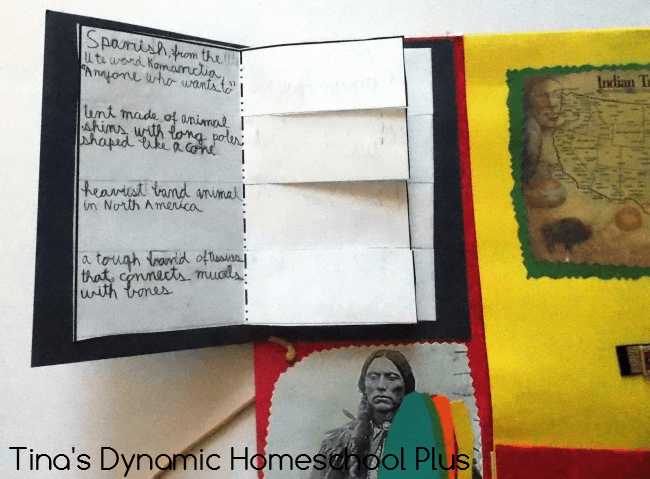 Spanish, from the
Ute word Komanctia,
"Anyone who wants to"
tent made of animal
skins with long poles
shaped like a cone
heaviest band animal
in North America
a tough band of tissues
that connects mucels
with bones
Indian T
Tina's Dynamic Homeschool Plus